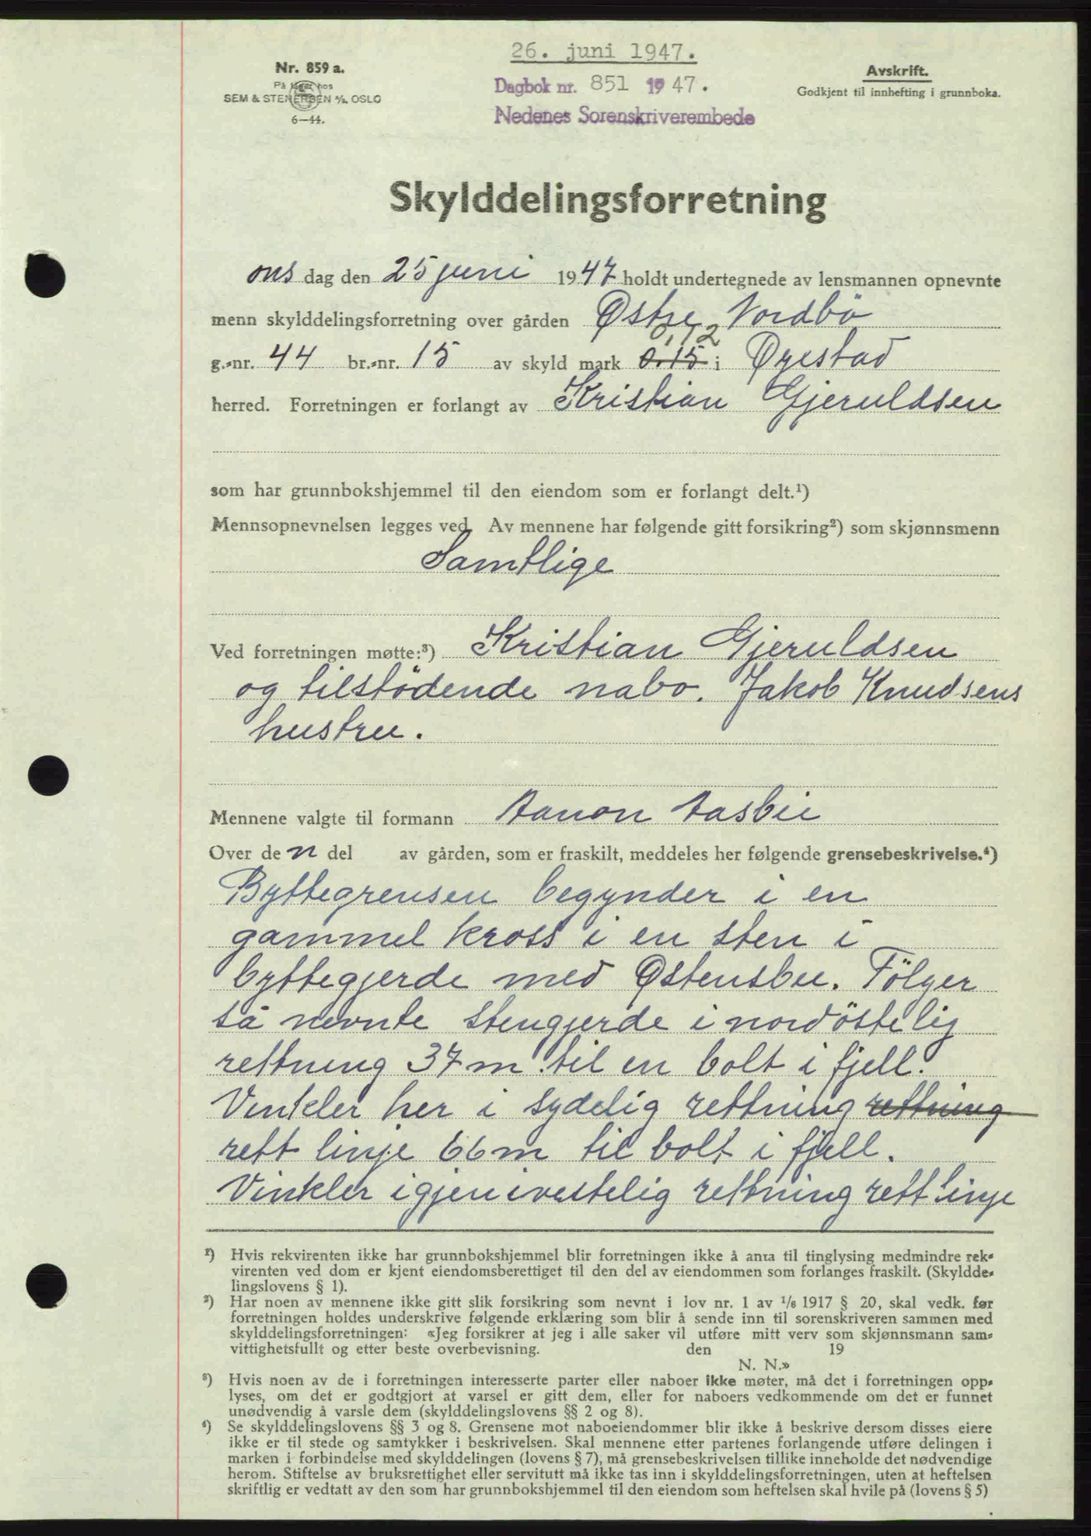 26. juni 1947.
Nr. 859 a.
På lager hos
SEM & STENERSEN A/S, OSLO
6—44.
Dagbok nr. 851 1947.
Nedenes Sorenskriverembede
Avskrift.
Godkjent til innhefting i grunnboka.
Skylddelingsforretning
ons dag den 25 juni 1947 holdt undertegnede av lensmannen opnevnte
menn skylddelingsforretning over gården Østre Nordbö
0,12
g.-nr. 44 br.-nr. 15 av skyld mark 0.15 i Øyestad
herred. Forretningen er forlangt av Kristian Gjeruldsen
som har grunnbokshjemmel til den eiendom som er forlangt delt.¹)
Mennsopnevnelsen legges ved. Av mennene har følgende gitt forsikring²) som skjønnsmenn
Samtlige
Ved forretningen møtte:³) Kristian Gjeruldsen
og tilstödende nabo. Jakob Knudsens
hustru.
Mennene valgte til formann Aanon Aasbie
Over den del av gården, som er fraskilt, meddeles her følgende grensebeskrivelse.⁴)
Byttegrensen begynder i en
gammel kross i en sten i
byttegjerde med Østensbu. Fölger
så nevnte stengjerde i nordöstelig
rettning 37m til en bolt i fjell.
Vinkler her i sydelig rettning rettning
rett linje 66m til bolt i fjell.
Vinkler igjen i vestelig rettning rett linje
¹) Hvis rekvirenten ikke har grunnbokshjemmel blir forretningen ikke å anta til tinglysing medmindre rek-
virenten ved dom er kjent eiendomsberettiget til den del av eiendommen som forlanges fraskilt. (Skyldde-
lingslovens § 1).
²) Har noen av mennene ikke gitt slik forsikring som nevnt i lov nr. 1 av ¹/₆ 1917 § 20, skal vedk. før
forretningen holdes underskrive følgende erklæring som blir å sende inn til sorenskriveren sammen med
skylddelingsforretningen: «Jeg forsikrer at jeg i alle saker vil utføre mitt verv som skjønnsmann sam-
vittighetsfullt og etter beste overbevisning. den 19
N. N.»
³) Hvis noen av de i forretningen interesserte parter eller naboer ikke møter, må det i forretningen opp-
lyses, om det er godtgjort at varsel er gitt dem, eller for naboers vedkommende om det er funnet
unødvendig å varsle dem (skylddelingslovens §§ 2 og 8).
⁴) Se skylddelingslovens §§ 3 og 8. Grensene mot naboeiendommer blir ikke å beskrive dersom disses eiere
ikke er til stede og samtykker i beskrivelsen. Skal mennene etter partenes forlangende utføre delingen i
marken i forbindelse med skylddelingen (lovens § 7), må grensebeskrivelsen tillike inneholde det nødvendige
herom. Stiftelse av bruksrettighet eller servitutt må ikke tas inn i skylddelingsforretningen, uten at heftelsen
skriftlig er vedtatt av den som har grunnbokshjemmel til den eiendom som heftelsen skal hvile på (lovens § 5)